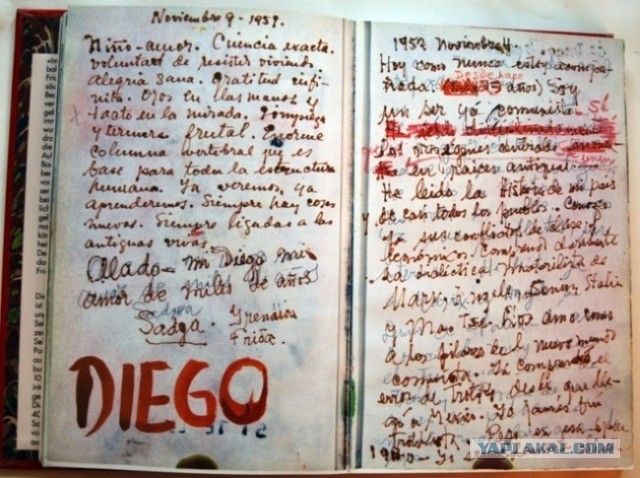 Noviembre 9 - 1951.
Niño-amor. Ciencia exacta.
voluntad de resistir viviendo
alegria sana. Gratitud infi-
nita. Ojos en las manos y
tacto en la mirada. Limpieza
y ternura frutal. Enorme
columna vertebral que es
base para toda la estructura
humana. Ya veremos, ya
aprenderemos. Siempre hay cosas
nuevas. Siempre ligadas a las
antiguas vivas.
Alado - mi Diego mi
amor de miles de años
Sadga. Yrenáica
Frida.
DIEGO
1952 Noviembre 4.
Hoy como nunca estoy acompa-
ñada. Desde hace (25 años) Soy
un ser ya comunista. Sé
los orígenes centrales
en raices antiguas.
He leido la Historia de mi pais
y de casi todos los pueblos. Conozco
ya sus conflictos de clase y
económicos. Comprendo claramente
la dialéctica materialista de
Marx, Engels, Lenin, Stalin
y Mao Tse. Los amo como
a los pilares del nuevo mundo
comunista. Ya comprendí el
error de Trotsky desde que lle-
gó a Mexico. Yo jamás fuí
trotskista.
YAPLAKAL.COM